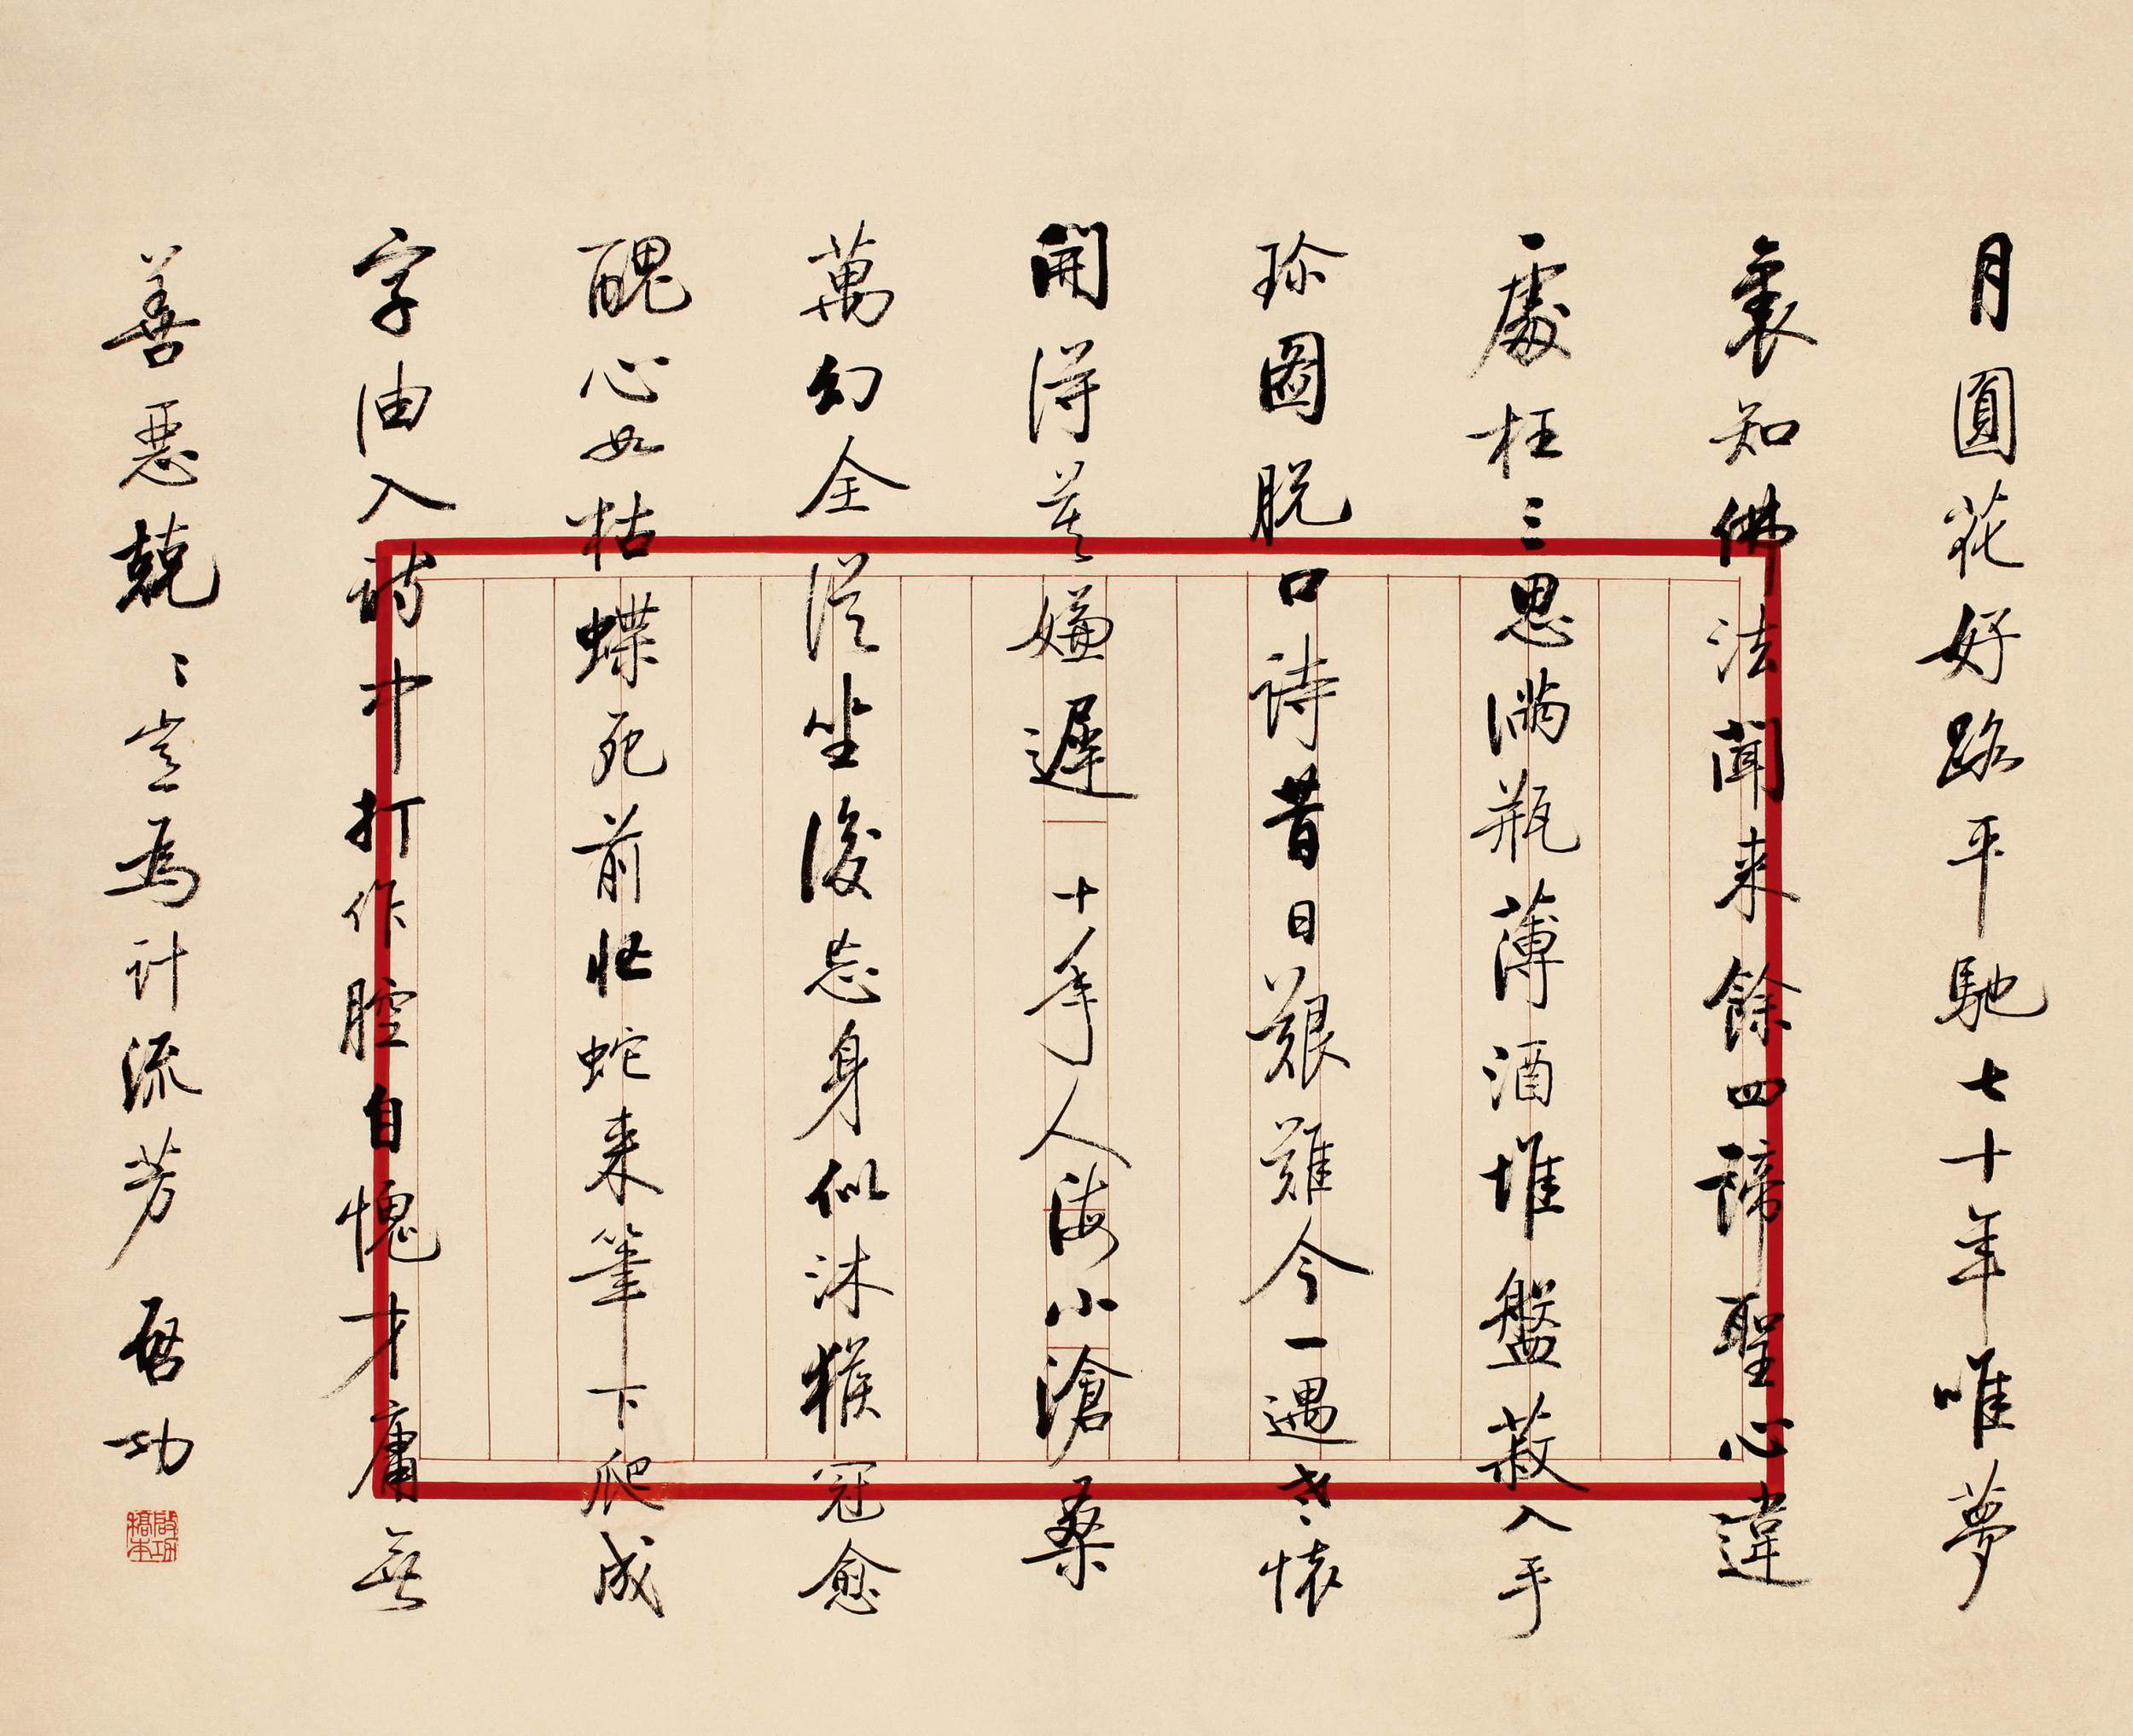 月圓花好路平馳七十年唯夢
裏知佛法聞来餘四諦聖心違
一處枉三思滿瓶薄酒堆盤菽入手
珍圖脱口詩昔日艱難今一遇老懷
開得莫嫌遲 十年人海小滄桑
萬幻全從坐後忘身似沐猴冠愈
醜心如枯蝶死前忙蛇来筆下爬成
字油入詩中打作腔自愧才庸無
善惡兢〻豈為計流芳 啓功